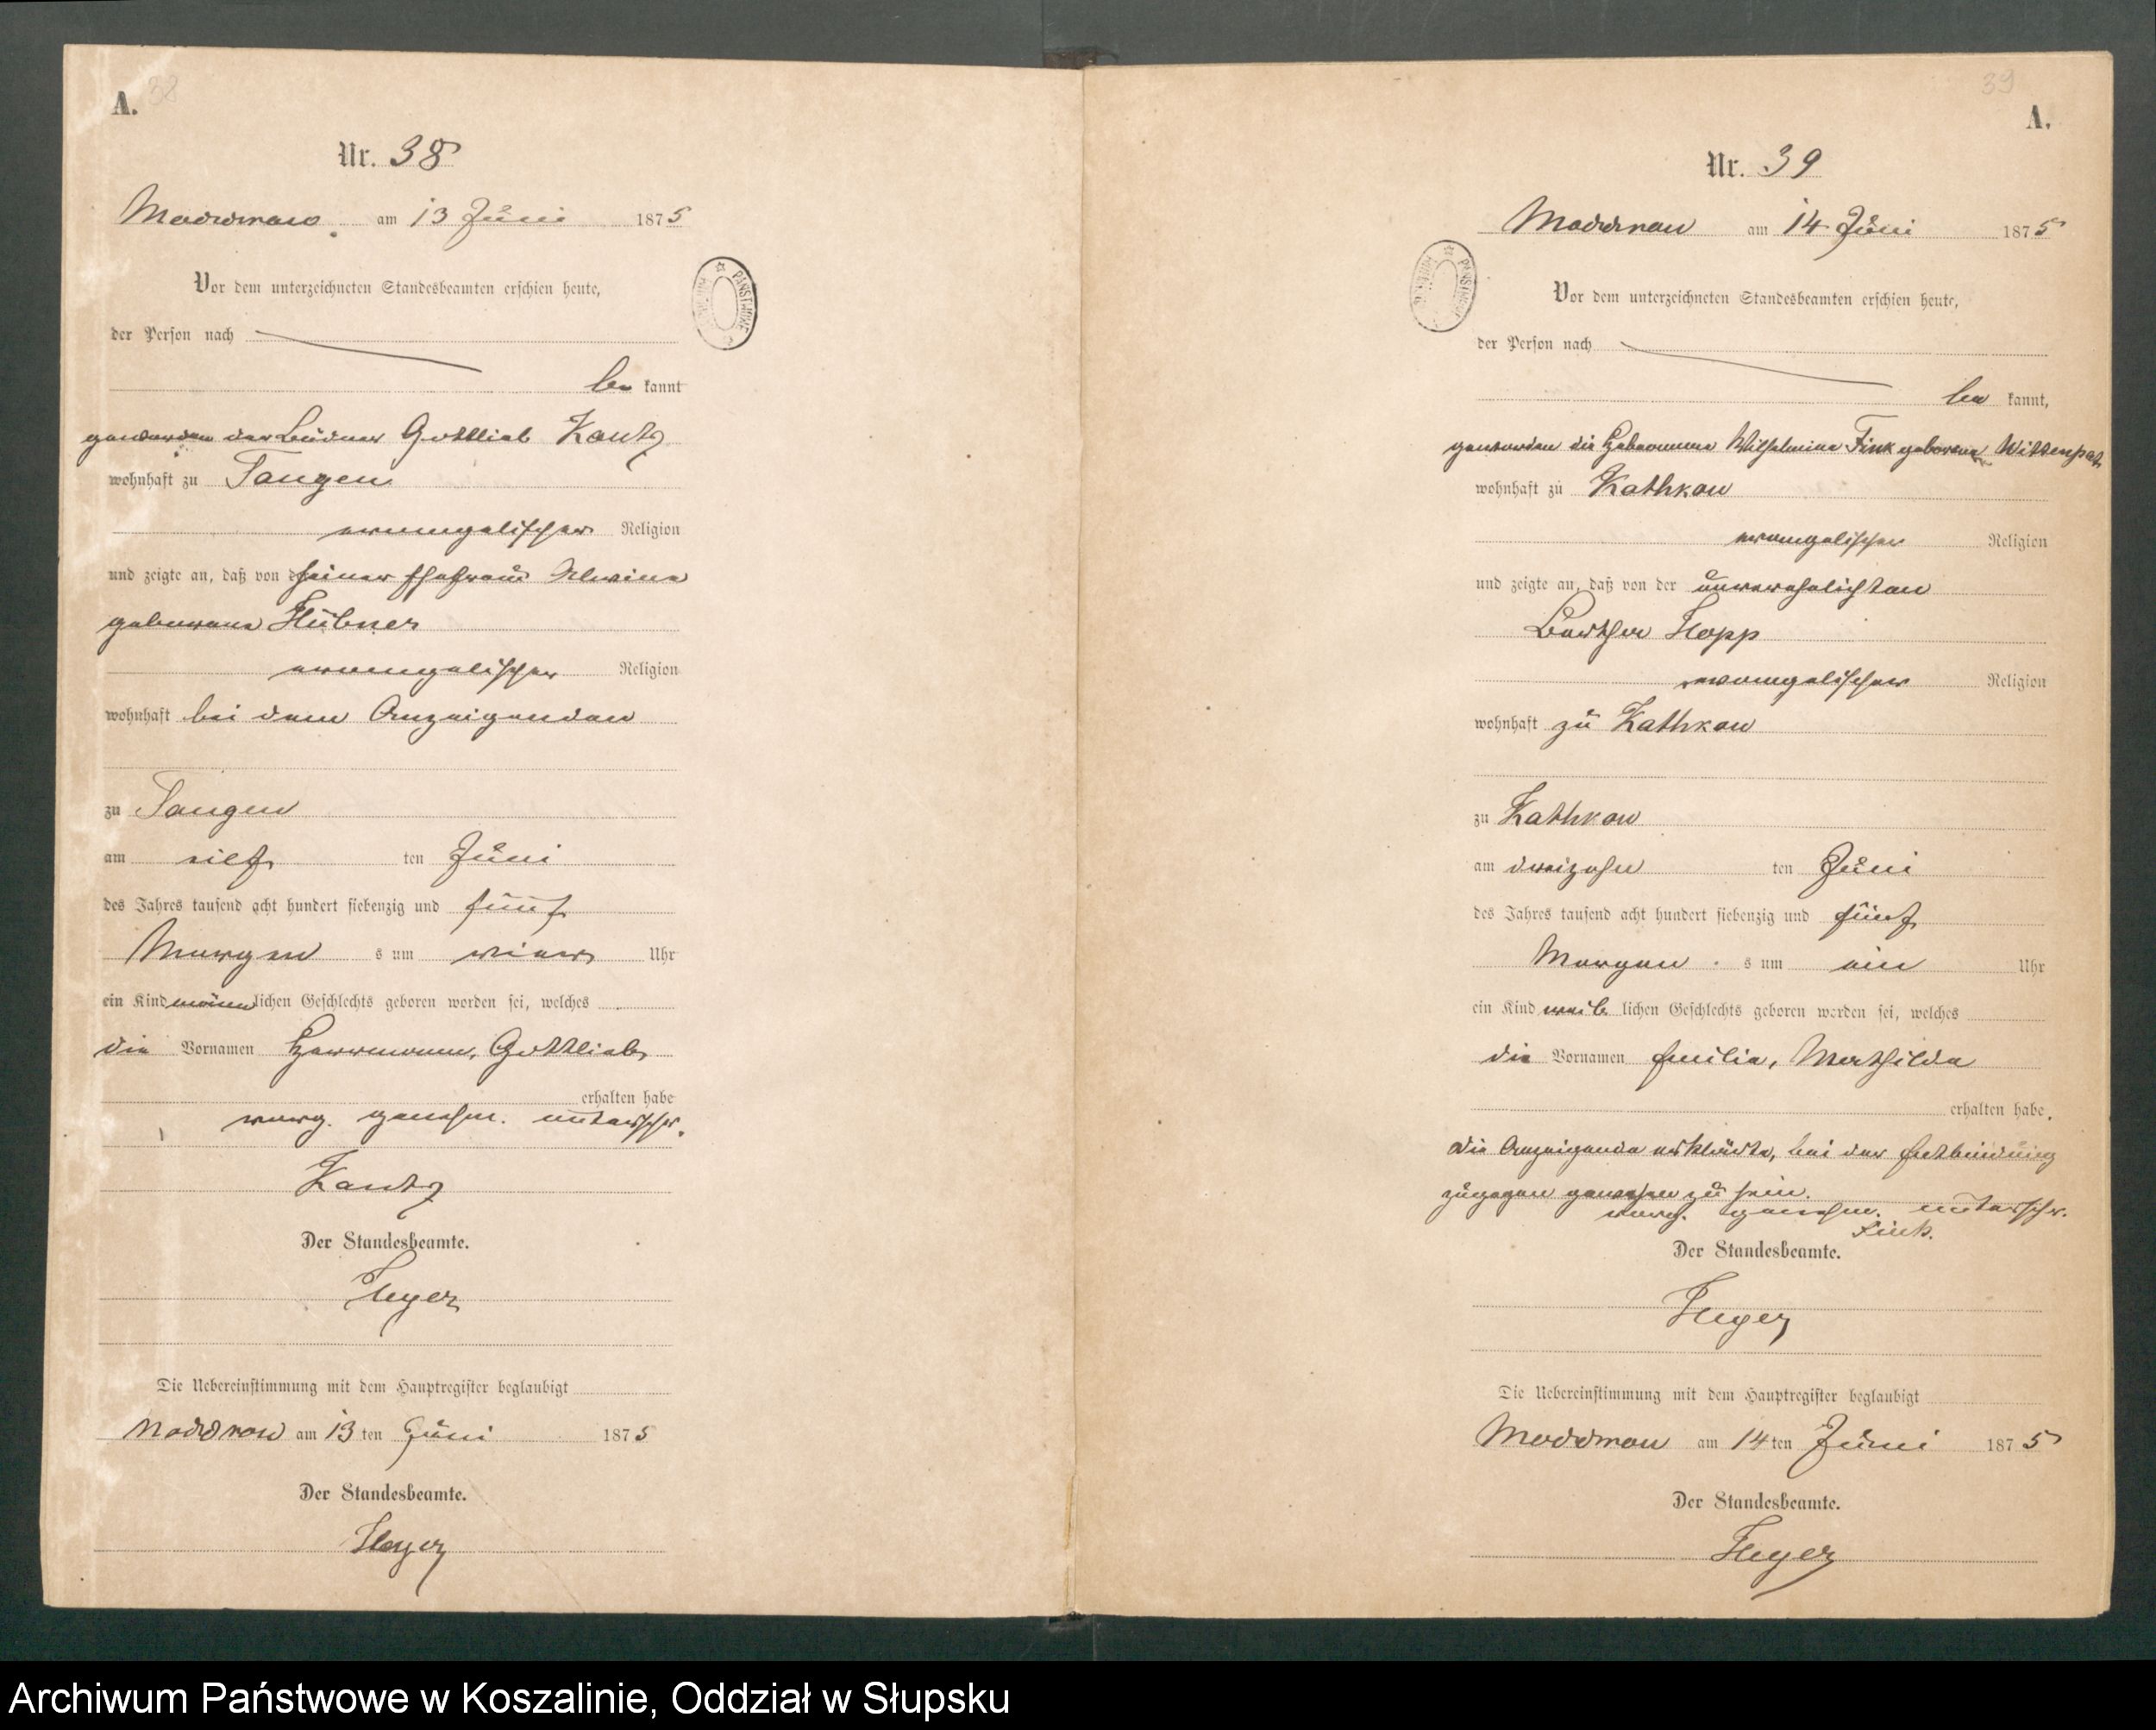 38
A.
Nr. 38
Moddrow am 13 Juni 1875
Vor dem unterzeichneten Standesbeamten erschien heute,
der Person nach
be kannt
geworden der Büdner Gottlieb Kautz
wohnhaft zu Tangen
evangelischer Religion
und zeigte an, daß von seiner Ehefrau Alwine
geborene Hübner
evangelischer Religion
wohnhaft bei dem Anzeigenden
zu Tangen
am eilf ten Juni
des Jahres tausend acht hundert siebenzig und fünf
Morgen s um vier Uhr
ein Kind männ lichen Geschlechts geboren worden sei, welches
die Vornamen Herrmann, Gottlieb
erhalten habe
vorg. genehm. unterschr.
Kautz
Der Standesbeamte.
Heyer
Die Uebereinstimmung mit dem Hauptregister beglaubigt
Moddrow am 13 ten Juni 1875
Der Standesbeamte.
Heyer
PAŃSTWOWE
39
A.
Nr. 39
Moddrow am 14 Juni 1875
Vor dem unterzeichneten Standesbeamten erschien heute,
der Person nach
be kannt,
geworden die Hebamme Wilhelmine Fink geborene
wohnhaft zu Kathkow
evangelischer Religion
und zeigte an, daß von der unverehelichten
Berther Hopp
evangelischer Religion
wohnhaft zu Kathkow
zu Kathkow
am dreizehn ten Juni
des Jahres tausend acht hundert siebenzig und fünf
Morgen s um ein Uhr
ein Kind weib lichen Geschlechts geboren worden sei, welches
die Vornamen Emilie, Mathilde
erhalten habe.
die Anzeigende erklärte, bei der Entbindung
zugegen gewesen zu sein.
vorg. genehm. unterschr.
Fink.
Der Standesbeamte.
Heyer
Die Uebereinstimmung mit dem Hauptregister beglaubigt
Moddrow am 14 ten Juni 1875
Der Standesbeamte.
Heyer
Archiwum Państwowe w Koszalinie, Oddział w Słupsku